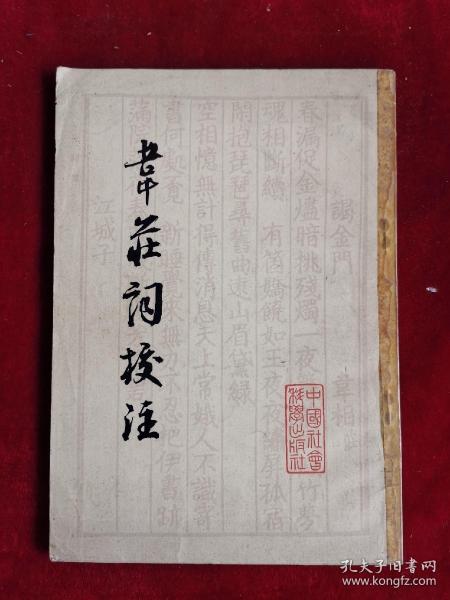 韋莊词校注
謁金門 韋相
春漏促金燼暗挑殘燭一夜 竹夢
魂相斷續 有箇嬌饒如玉夜夜繡屏孤宿
閑抱琵琶尋舊曲遠山眉黛綠
空相憶無計得傳消息天上常娥人不識寄
書何處覓 新睡覺來無力不忍把伊書跡
滿院
江城子
中國社會
科學出版社
孔夫子旧书网
www.kongfz.com